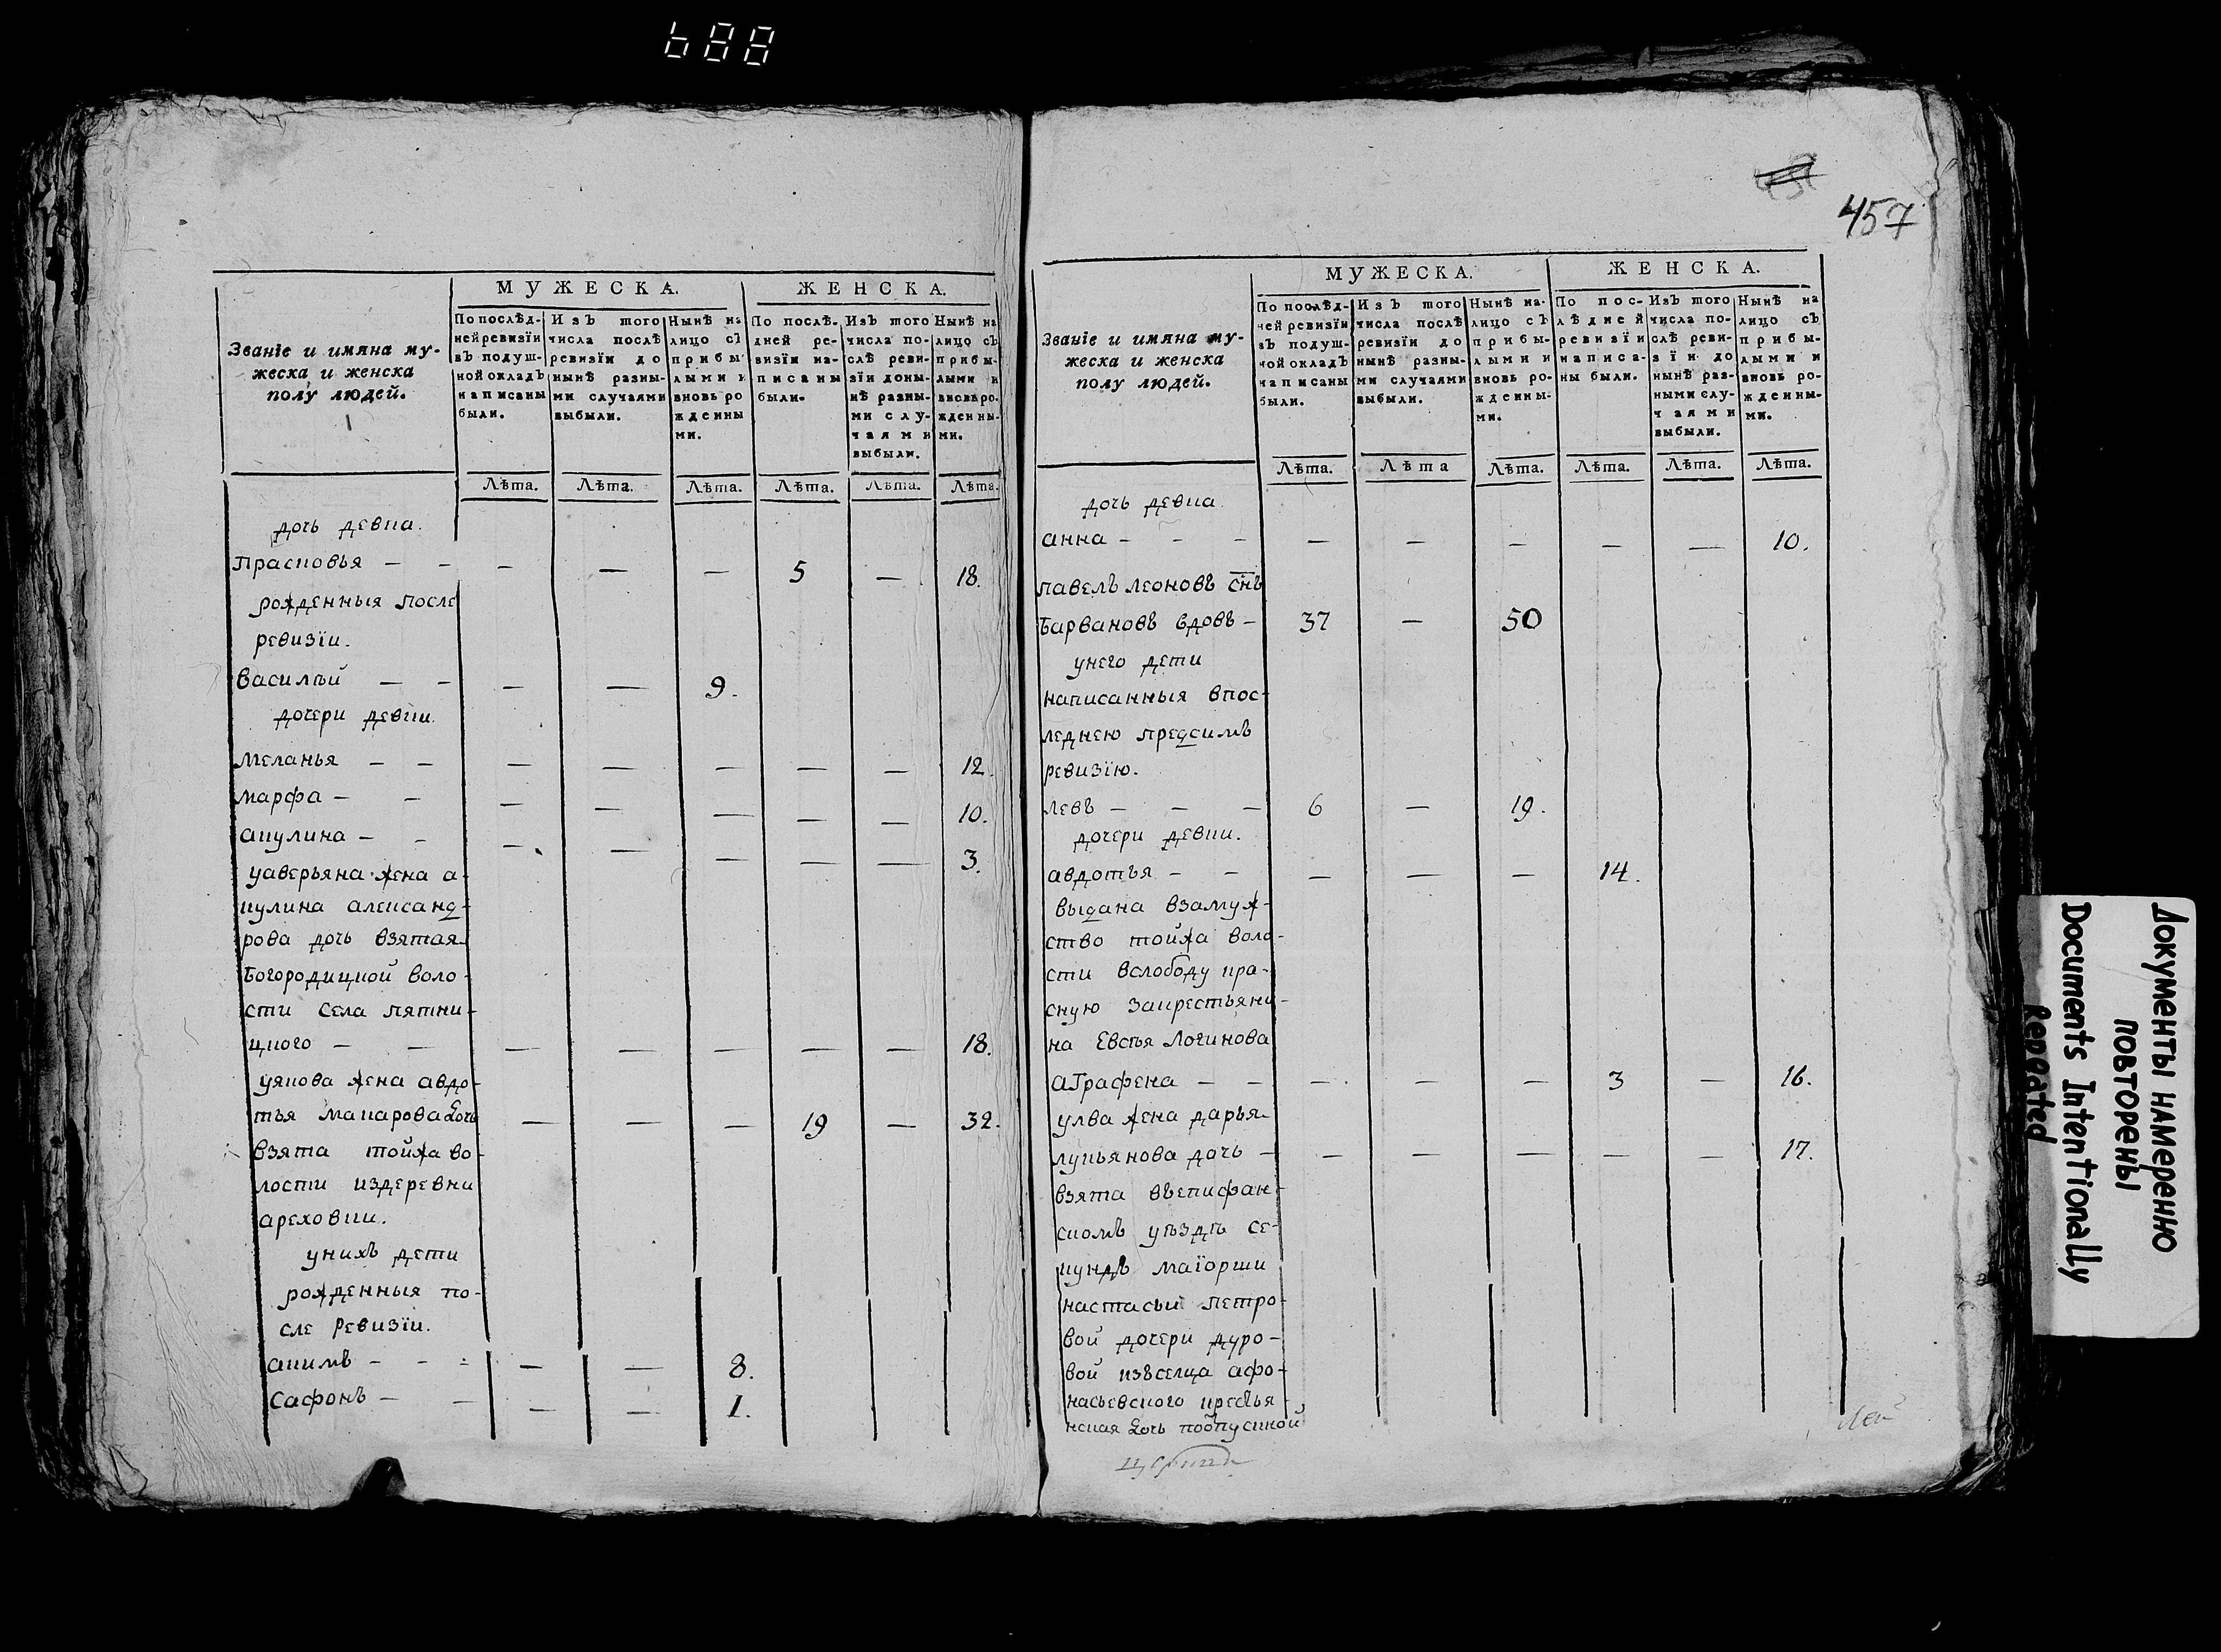 457
МУЖЕСКА. ЖЕНСКА.
Званіе и имяна му-
жеска и женска
полу людей.
По послѣд-
ней ревизїи
въ подуш-
ной окладъ
написаны
были.
Изъ того
числа послѣ
ревизїи до
нынѣ разны-
ми случаями
выбыли.
Нынѣ на
лицо съ
прибы
лыми и
вновь ро
жденны
ми.
По послѣ-
дней ре-
визїи на-
писаны
были.
Изъ того
числа по-
слѣ реви-
зїи доны-
нѣ разны-
ми слу-
чаями
выбыли.
Нынѣ на
лицо съ
прибы-
лыми и
вновь ро-
жденны-
ми.
Лѣта. Лѣта. Лѣта. Лѣта. Лѣта. Лѣта.
дочь девка.
Прасковья — — — — — 5 — 18.
рожденныя после
ревизїи.
василѣй — — — — 9.
дочери девки.
меланья — — — — — — — 12.
марфа — — — — — — — 10.
акулина — — — — — — — 3.
уаверьяна жена а-
кулина александ-
рова дочь взятая
Богородицкой воло-
сти села пятни-
цкого — — — — — — — 18.
уякова жена авдо-
тья макарова дочь — — — 19 — 32.
взята тойжа во-
лости издеревни
ареховки.
унихъ дети
рожденныя по-
сле ревизїи.
акимъ — — — — — 8.
Сафонъ — — — — 1.
МУЖЕСКА. ЖЕНСКА.
Званіе и имяна му-
жеска и женска
полу людей.
По послѣд-
ней ревизїи
въ подуш-
ной окладъ
написаны
были.
Изъ того
числа послѣ
ревизїи до
нынѣ разны-
ми случаями
выбыли.
Нынѣ на-
лицо съ
прибы-
лыми и
вновь ро-
жденны-
ми.
По пос-
лѣдней
ревизїи
написа-
ны были.
Изъ того
числа по-
слѣ реви-
зїи до
нынѣ раз-
ными слу-
чаями
выбыли.
Нынѣ на
лицо съ
прибы-
лыми и
вновь ро-
жденны-
ми.
Лѣта. Лѣта Лѣта. Лѣта. Лѣта. Лѣта.
дочь девка.
анна — — — — — — — — 10.
павелъ леоновъ снъ
Барвановъ вдовъ — 37 — 50
унего дети
написанныя впос-
леднею предсимъ
ревизїю.
левъ — — — 6 — 19.
дочери девки.
авдотья — — — — — 14.
выдана взамуж-
ство тойжа воло-
сти вслободу кра-
сную закрестьяни-
на Евсѣя Логинова
аграфена — — — — — 3 — 16.
улва жена дарья
лукьянова дочь — — — — — — 17.
взята въепифан-
скомъ уѣздѣ се-
кундъ маїорши
настасьи петро-
вой дочери дуро-
вой изъселца афо-
насьевского крестья-
нская дочь поотпускной
Документы намеренно
повторены
Documents Intentionally
Repeated